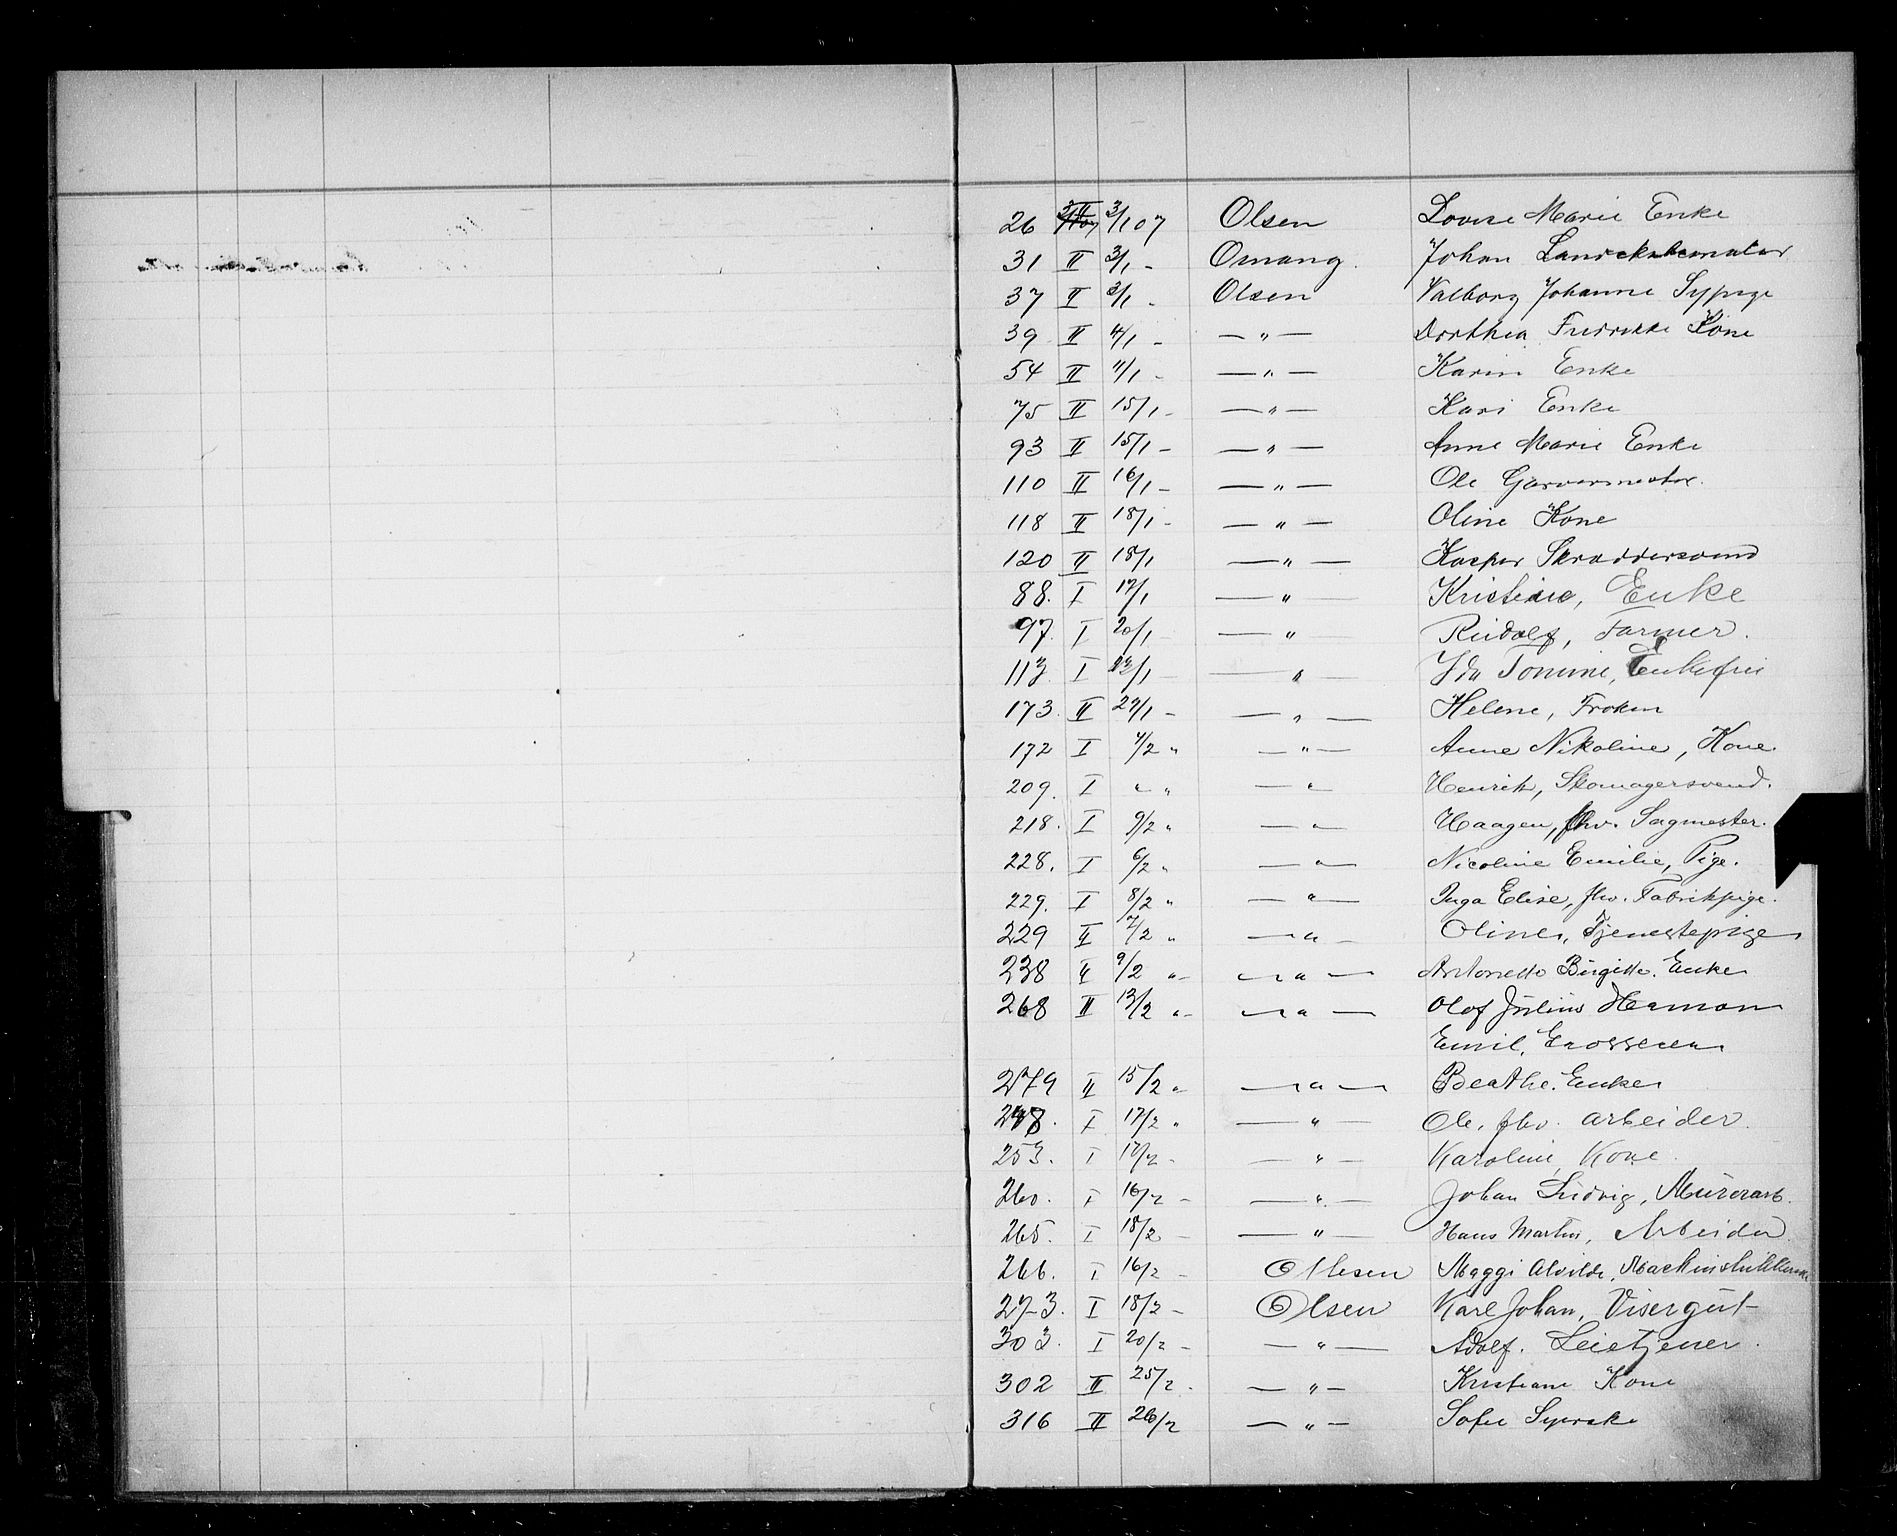 26 II 3/1 07 Olsen Lovise Marie Enke
31 II 3/1 - Omang. Johan
37 II 3/1 - Olsen Valborg Johanne Sypige
39 II 4/1 - — " — Dorthea Fredrikke Kone
54 II 11/1 - — " — Karin Enke
75 II 15/1 - — " — Kari Enke
93 II 15/1 - — " — Anne Marie Enke
110 II 16/1 - — " — Ole Garvermester.
118 II 18/1 - — " — Oline Kone
120 II 18/1 — " — Kasper Skræddersvend
88. I 17/1 — " — Kristine, Enke
97. I 20/1 — " — Rudolf, Farmer.
113 I 22/1 — " — Ida Tomine, Enkefru
173. II 29/1 - — " — Helene, Frøken
172 I 4/2 " — " — Anne Nikoline, Kone.
209. I " " — " — Henrik, Skomagersvend.
218. I 9/2 " — " — Haagen, fhv. Sagmester.
228. I 6/2 " — " — Nicoline Emilie, Pige.
229. I 8/2 " — " — Inga Elise, fhv. Fabrikpige.
229 II 7/2 " — " — Oline, Tjenestepige
238 II 9/2 " — " — Antonette Birgitte. Enke
268 II 13/2 " — " — Olof Julius Herman
Emil, Grosserer
279 II 15/2 " — " — Beathe. Enke
248. I 17/2 " — " — Ole, fhv. arbeider.
253. I 17/2 - — " — Karoline, Kone.
260. I 16/2 - — " — Johan Ludvig, Murerarb.
265. I 18/2 - — " — Hans Martin, Arbeider
266. I 16/2 - Ollesen Maggi Alvilde,
273. I 18/2 - Olsen Karl Johan, Visergut
303. I 20/2 - — " — Adolf. Leietjener.
302 II 25/2 - — " — Kristiane Kone
316 II 26/2 — " — Sofie Syerske